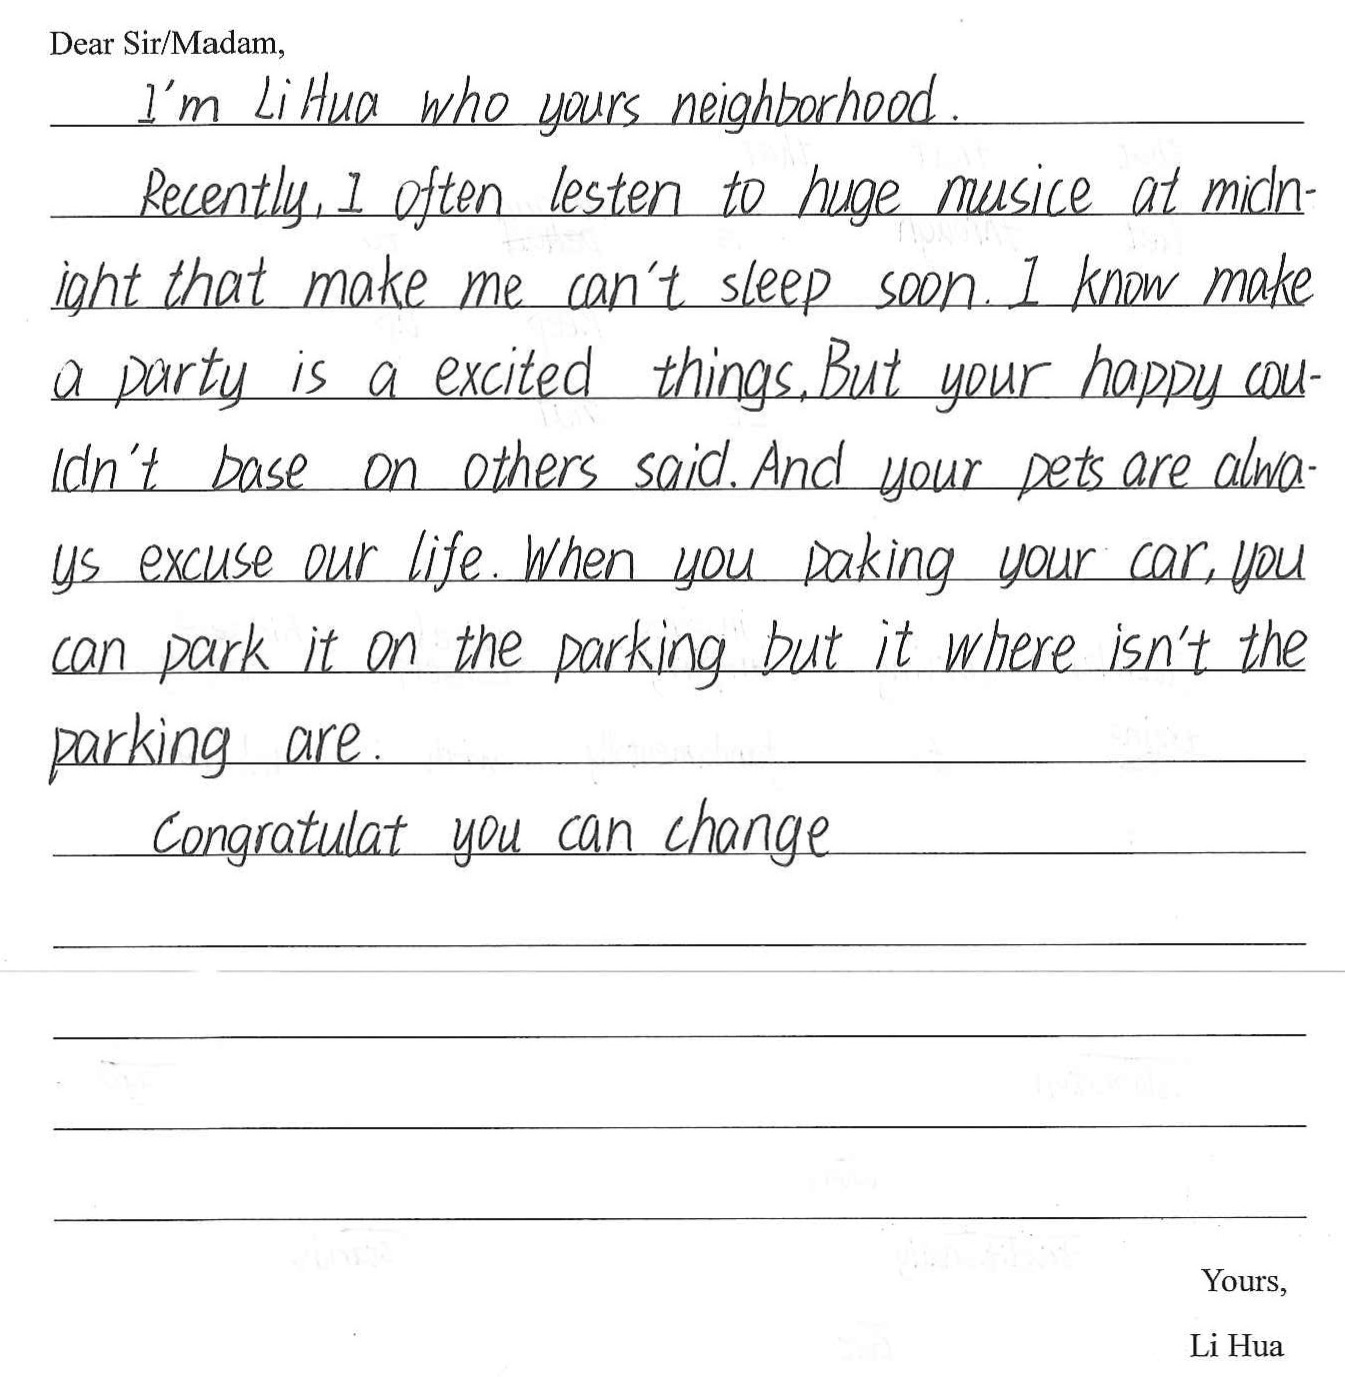 Dear Sir/Madam,
I'm Li Hua who yours neighborhood.
Recently, I often lesten to huge musice at midn-
ight that make me can't sleep soon. I know make
a party is a excited things. But your happy cou-
ldn't base on others said. And your pets are alwa-
ys excuse our life. When you paking your car, you
can park it on the parking but it where isn't the
parking are.
Congratulat you can change
Yours,
Li Hua